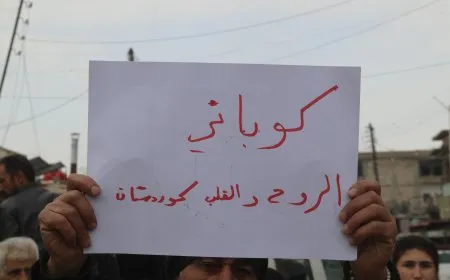 كوباني
الروح والقلب كوردستان